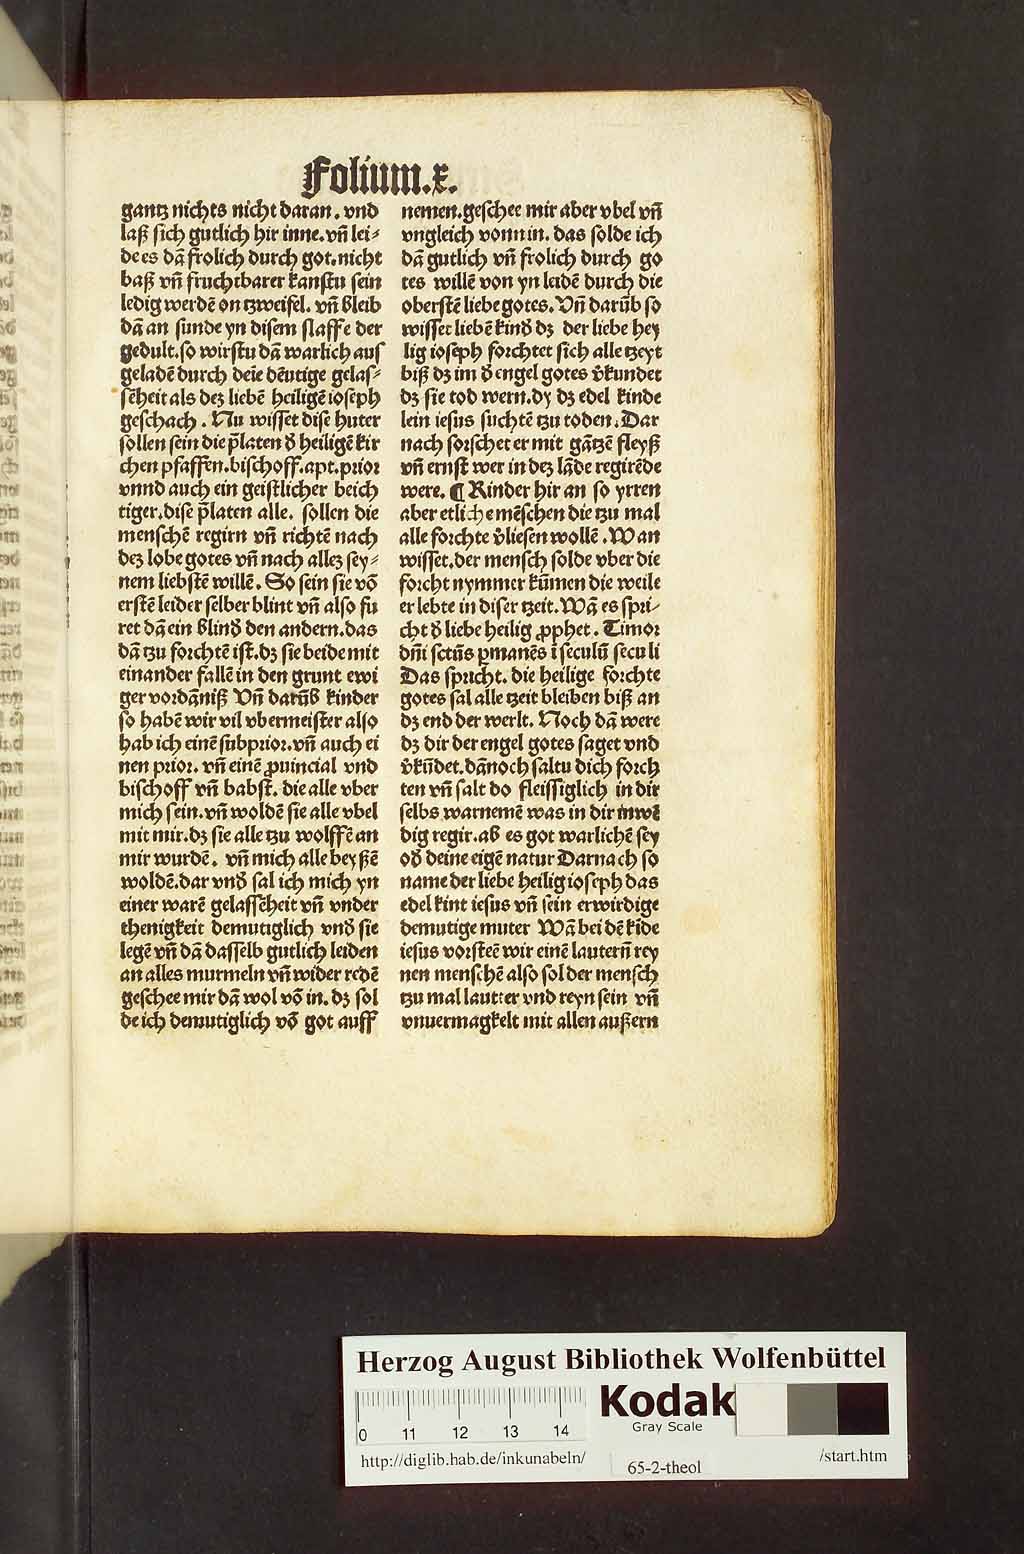 Folium.x.
gantz nichts nicht daran. vnd
laß sich gutlich hir inne. vn̄ lei⸗
de es dā frolich durch got. nicht
baß vn̄ fruchtbarer kanstu sein
ledig werdē on tzweifel. vn̄ bleib
dā an sunde yn disem slaffe der
gedult. so wirstu dā warlich aus
geladē durch deīe dēutige gelas⸗
sēheit als dez liebē heiligē ioseph
geschach. Nu wisset dise huter
sollen sein die p̄laten d̕ heiligē kir
chen pfaffen. bischoff. apt. prior
vnnd auch ein geistlicher beich
tiger. dise p̄laten alle. sollen die
menschē regirn vn̄ richtē nach
dez lobe gotes vn̄ nach allez sey⸗
nem liebstē willē. So sein sie vō
erstē leider selber blint vn̄ also fu
ret dā ein blind̕ den andern. das
dā tzu forchtē ist. dz sie beide mit
einander fallē in den grunt ewi
ger vordāniß Vn̄ darūb kinder
so habē wir vil vbermeister also
hab ich einē subprior. vn̄ auch ei
nen prior. vn̄ einē ꝓuincial vnd
bischoff vn̄ babst. die alle vber
mich sein. vn̄ woldē sie alle vbel
mit mir. dz sie alle tzu wolffē an
mir wurdē. vn̄ mich alle beyßē
woldē. dar vnd̕ sal ich mich yn
einer warē gelassēheit vn̄ vnder
thenigkeit demutiglich vnd̕ sie
legē vn̄ dā dasselb gutlich leiden
an alles murmeln vn̄ wider redē
geschee mir dā wol vō in. dz sol
de ich demutiglich vō got auff
nemen. geschee mir aber vbel vn̄
vngleich vonn in. das solde ich
dā gutlich vn̄ frolich durch go
tes willē von yn leidē durch die
oberstē liebe gotes. Vn̄ darūb so
wisset liebē kind̕ dz der liebe hey
lig ioseph forchtet sich alle tzeyt
biß dz im d̕ engel gotes v̕kundet
dz sie tod wern. dy dz edel kinde
lein iesus suchtē tzu toden. Dar
nach forschet er mit gātzē fleyß
vn̄ ernst wer in dez lāde regirēde
were. ¶ Kinder hir an so yrren
aber etliche mēschen die tzu mal
alle forchte v̕liesen wollē. Wan
wisset. der mensch solde vber die
forcht nymmer kūmen die weile
er lebte in diser tzeit. Wā es spri⸗
cht d̕ liebe heilig ꝓphet. Timor
dn̄i sctūs ꝑmanēs ī seculū seculi
Das spricht. die heilige forchte
gotes sal alle tzeit bleiben biß an
dz end der werlt. Noch dā were
dz dir der engel gotes saget vnd
v̕kūdet. dānoch saltu dich forch
ten vn̄ salt do fleissiglich in dir
selbs warnemē was in dir inwē
dig regir. ab es got warlichē sey
od̕ deine eigē natur Darnach so
name der liebe heilig ioseph das
edel kint iesus vn̄ sein erwirdige
demutige muter Wā bei dē kīde
iesus vorsteē wir einē lautern̄ rey
nen menschē also sol der mensch
tzu mal lautter vnd reyn sein vn̄
vnuermagkelt mit allen außern
Herzog August Bibliothek Wolfenbüttel
0 11 12 13 14
Kodak
Gray Scale
http://diglib.hab.de/inkunabeln/
65-2-theol
/start.htm